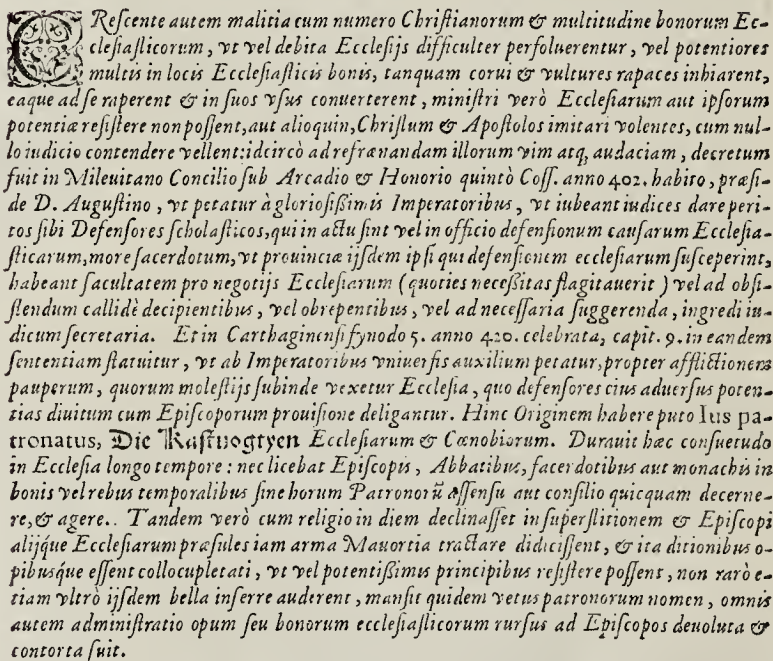 CRescente autem malitia cum numero Christianorum & multitudine bonorum Ec-
clesiasticorum, vt vel debita Ecclesijs difficulter persoluerentur, vel potentiores
multis in locis Ecclesiasticis bonis, tanquam corui & vultures rapaces inhiarent,
eaque ad se raperent & in suos vsus conuerterent, ministri verò Ecclesiarum aut ipsorum
potentiæ resistere non possent, aut alioquin, Christum & Apostolos imitari volentes, cum nul-
lo iudicio contendere vellent: idcircò ad refrænandam illorum vim atq, audaciam, decretum
fuit in Mileuitano Concilio sub Arcadio & Honorio quintò Coss. anno 402. habito, præsi-
de D. Augustino, vt petatur à gloriosißimis Imperatoribus, vt iubeant iudices dare peri-
tos sibi Defensores scholasticos, qui in actu sint vel in officio defensionum causarum Ecclesia-
sticarum, more sacerdotum, vt prouinciæ ijsdem ipsi qui defensionem ecclesiarum susceperint,
habeant facultatem pro negotijs Ecclesiarum (quoties neceßitas flagitauerit) vel ad obsi-
stendum callidè decipientibus, vel obrepentibus, vel ad necessaria suggerenda, ingredi iu-
dicum secretaria. Et in Carthaginensi synodo 5. anno 420. celebrata, capit. 9. in eandem
sententiam statuitur, vt ab Imperatoribus vniuersis auxilium petatur, propter afflictionem
pauperum, quorum molestijs subinde vexetur Ecclesia, quo defensores eius aduersus poten-
tias diuitum cum Episcoporum prouisione deligantur. Hinc Originem habere puto Ius pa-
tronatus, Die Kastuogtyen Ecclesiarum & Cœnobiorum. Durauit hæc consuetudo
in Ecclesia longo tempore: nec licebat Episcopis, Abbatibus, sacerdotibus aut monachis in
bonis vel rebus temporalibus sine horum Patronorũ assensu aut consilio quicquam decerne-
re, & agere.. Tandem verò cum religio in diem declinasset in superstitionem & Episcopi
alijque Ecclesiarum præsules iam arma Mauortia tractare didicissent, & ita ditionibus o-
pibusque essent collocupletati, vt vel potentißimis principibus resistere possent, non rarò e-
tiam vltrò ijsdem bella inferre auderent, mansit quidem vetus patronorum nomen, omnis
autem administratio opum seu bonorum ecclesiasticorum rursus ad Episcopos deuoluta &
contorta fuit.